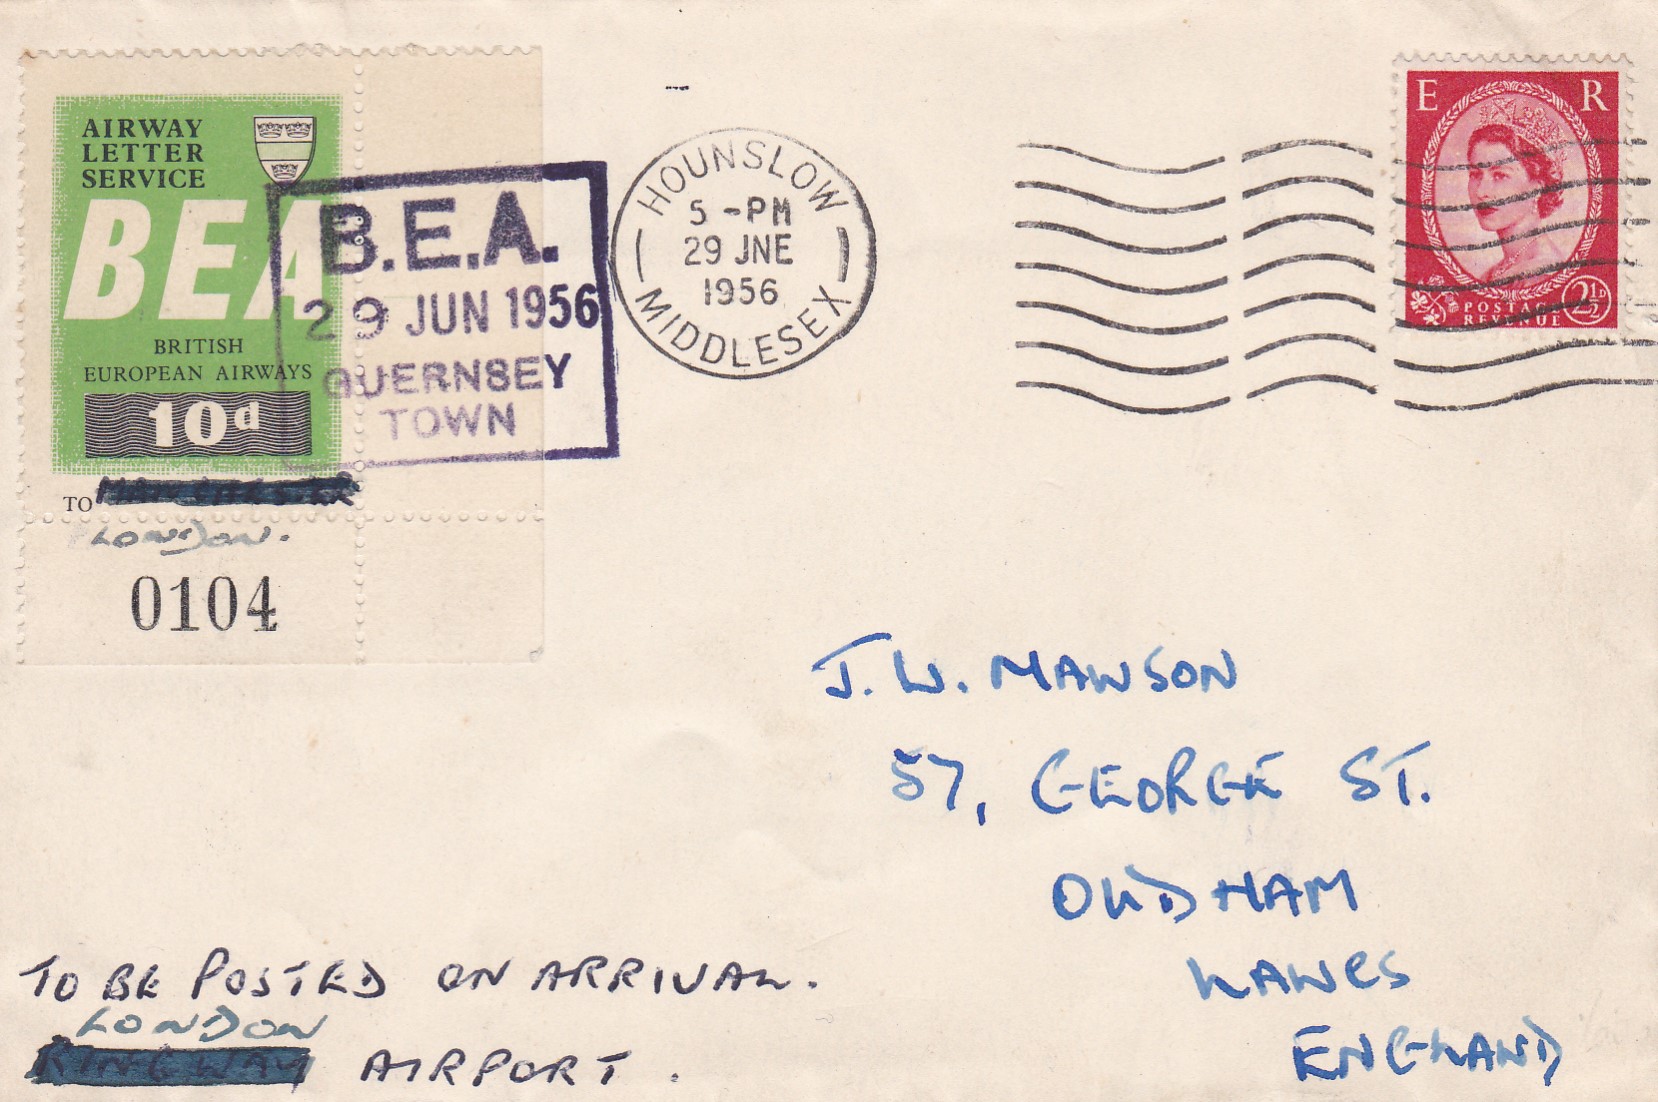 AIRWAY
LETTER
SERVICE
BEA
BRITISH
EUROPEAN AIRWAYS
10d
TO MANCHESTER
LONDON.
0104
B.E.A.
29 JUN 1956
GUERNSEY
TOWN
HOUNSLOW
5 -PM
29 JNE
1956
MIDDLESEX
E R
POSTAGE
REVENUE
2½D
J. W. MAWSON
57, GEORGE ST.
OLDHAM
LANCS
ENGLAND
TO BE POSTED ON ARRIVAL.
LONDON
RINGWAY AIRPORT.